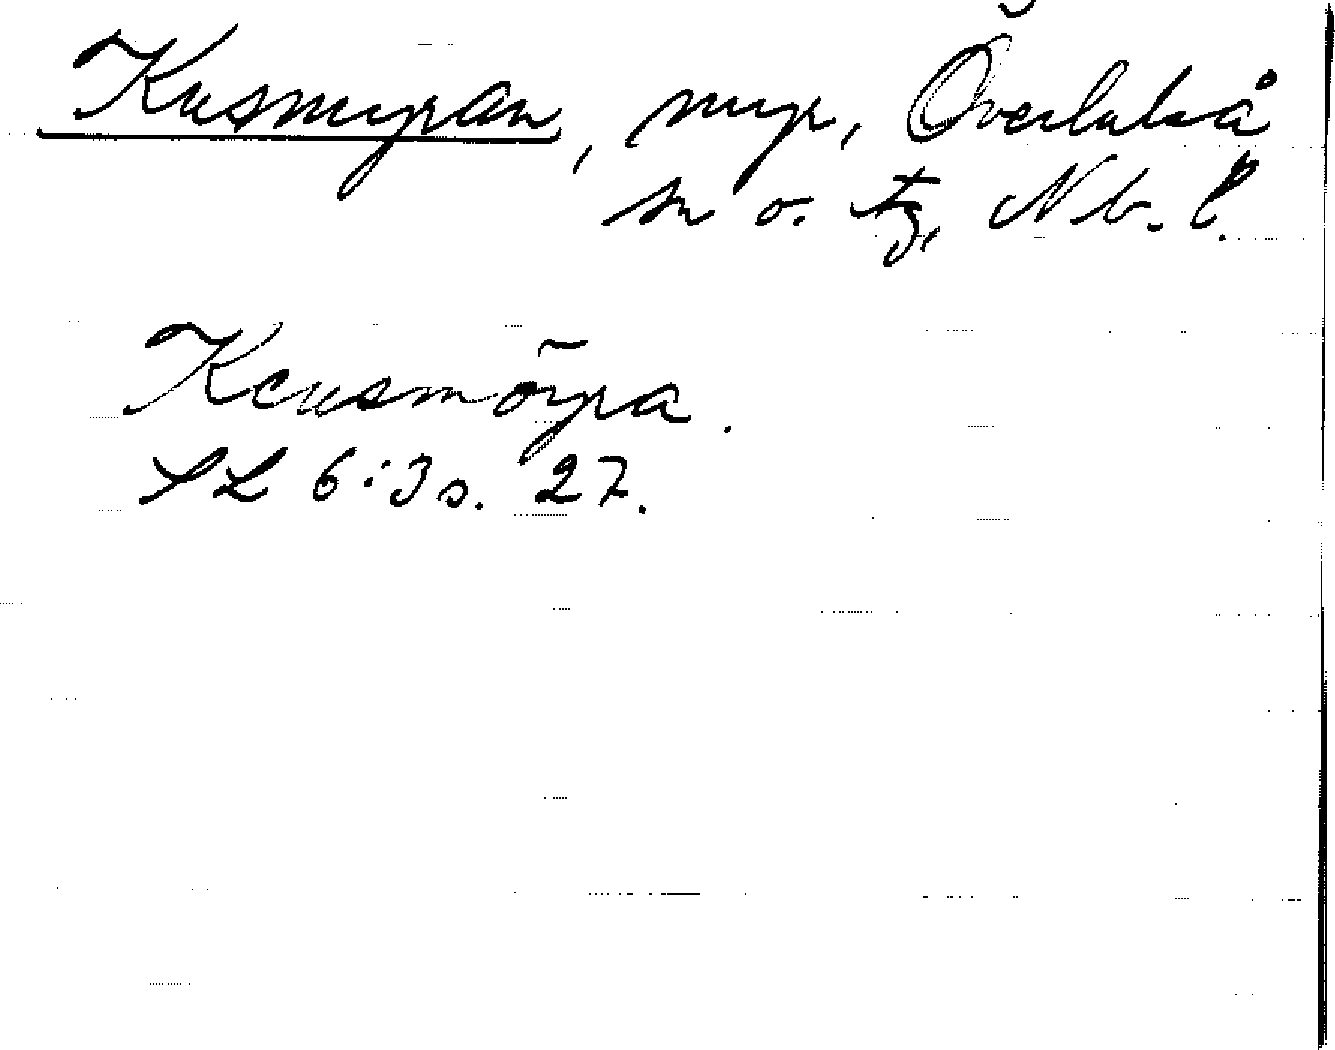 Kusmyran, myr, Överluleå
sn o. tg, Nb. l.
Keusmöyra.
SL 6:3 s. 27.